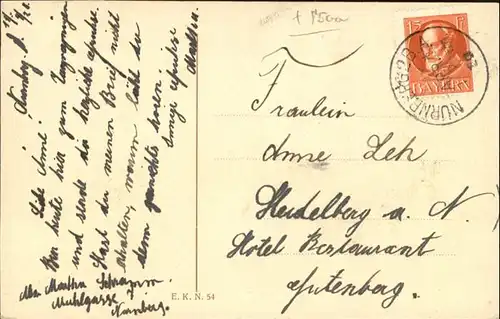 + 1500
Nürnberg d. 7/7. 12.
Liebe Anne!
Bin heute hier zum
und sende dir herzliche Grüsse.
Hast du meinen Brief nicht
erhalten, warum lässt du
denn garnichts hören.
Innige Grüsse
Martha.
Mühlgasse
Nürnberg.
E. K. N. 54
15 Pf 15
BAYERN
NÜRNBERG
Fräulein
Anne Zeh
Heidelberg a. N.
Hotel Restaurant
Gutenberg.